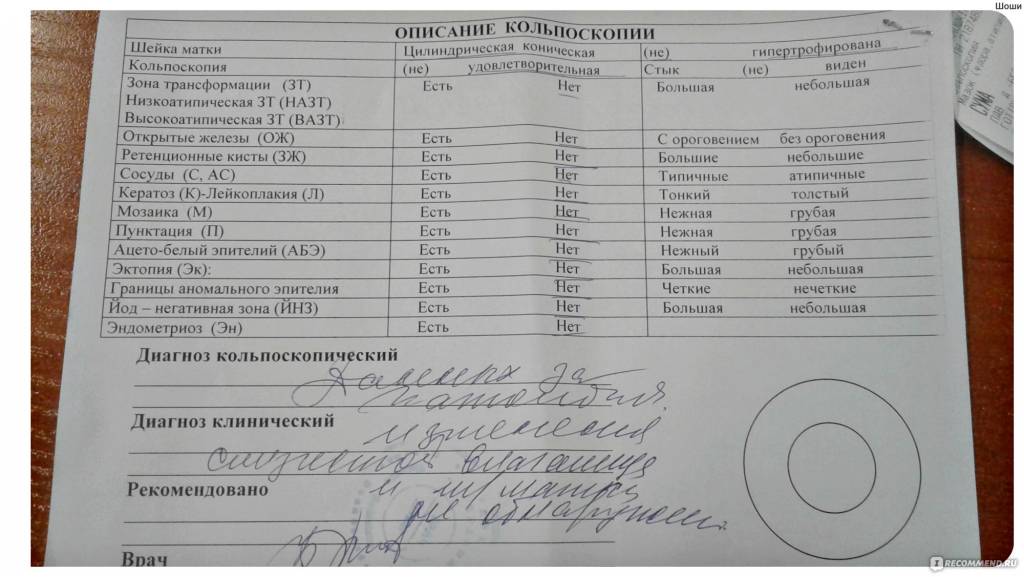 Шоши
ОПИСАНИЕ КОЛЬПОСКОПИИ
Шейка матки Цилиндрическая коническая (не) гипертрофирована
Кольпоскопия (не) удовлетворительная Стык (не) виден
Зона трансформации (ЗТ) Есть Нет Большая небольшая
Низкоатипическая ЗТ (НАЗТ)
Высокоатипическая ЗТ (ВАЗТ)
Открытые железы (ОЖ) Есть Нет С ороговением без ороговения
Ретенционные кисты (ЗЖ) Есть Нет Большие небольшие
Сосуды (С, АС) Есть Нет Типичные атипичные
Кератоз (К)-Лейкоплакия (Л) Есть Нет Тонкий толстый
Мозаика (М) Есть Нет Нежная грубая
Пунктация (П) Есть Нет Нежная грубая
Ацето-белый эпителий (АБЭ) Есть Нет Нежный грубый
Эктопия (Эк): Есть Нет Большая небольшая
Границы аномального эпителия Есть Нет Четкие нечеткие
Йод – негативная зона (ЙНЗ) Есть Нет Большая небольшая
Эндометриоз (Эн) Есть Нет
Диагноз кольпоскопический
Данных за
Диагноз клинический
изменения
слизистой влагалища
Рекомендовано
и ш/матки
не обнаружено.
Врач
СУМА
IRECOMMEND.RU